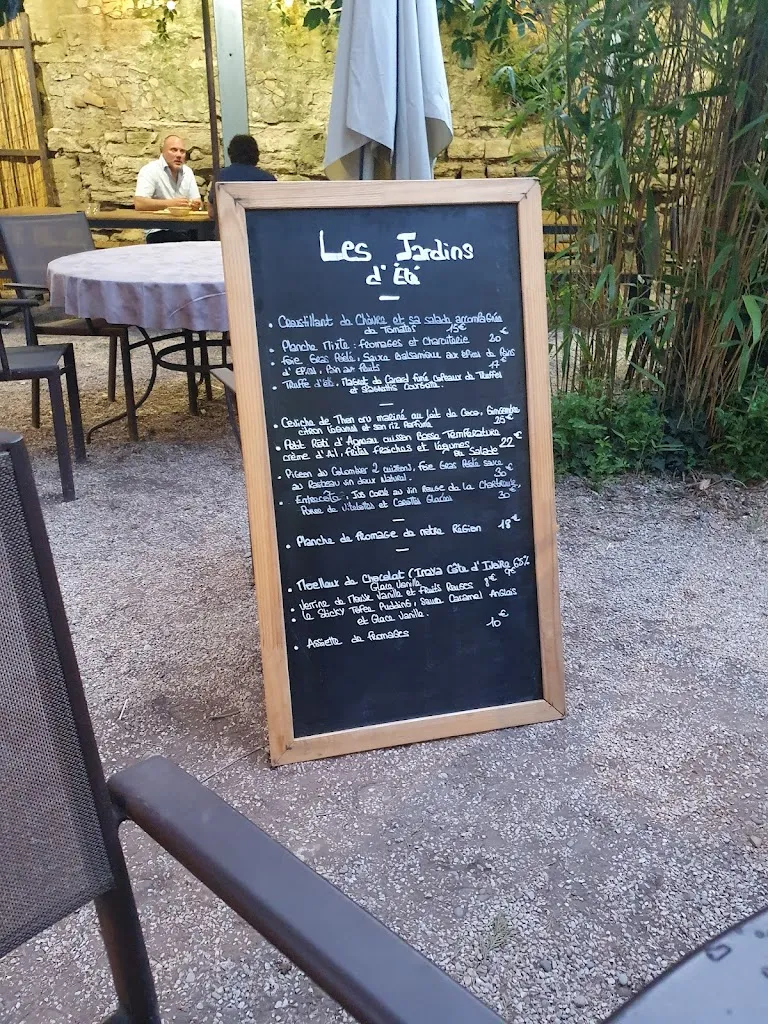 Les Jardins
d'Été
• Croustillant de Chèvre et sa salade accompagnée
de Tomates 15€
• Planche Mixte : fromages et Charcuterie 20€
• Foie Gras Poêlé, Sauce balsamique aux épices de Pain
d'Epices, Pain aux fruits 17€
• Truffe d'été, Magret de Canard fumé copeaux de Truffes
et
• Ceviche de Thon cru mariné au lait de Coco, Gingembre
citron et son riz Parfumé 25€
• Petit Rôti d'Agneau cuisson Basse Température
crème d'Ail, frites fraiches et légumes ou Salade 22€
• Pigeon du Colombier 2 cuissons, Foie Gras Poêlé sauce
au vin doux Naturel. 30€
• Entrecôte, Jus corsé au vin rouge de la
Purée de Vitelottes et Carottes Glacées 30€
• Planche de fromage de notre Région 18€
• Moelleux de Chocolat (Inaya Côte d'Ivoire 65%
Glace Vanille 9€
• Verrine de Mousse Vanille et Fruits Rouges 8€
• Le Sticky Tofee Pudding, Sauce Caramel Anglais
et Glace Vanille.
10€
• Assiette de fromages